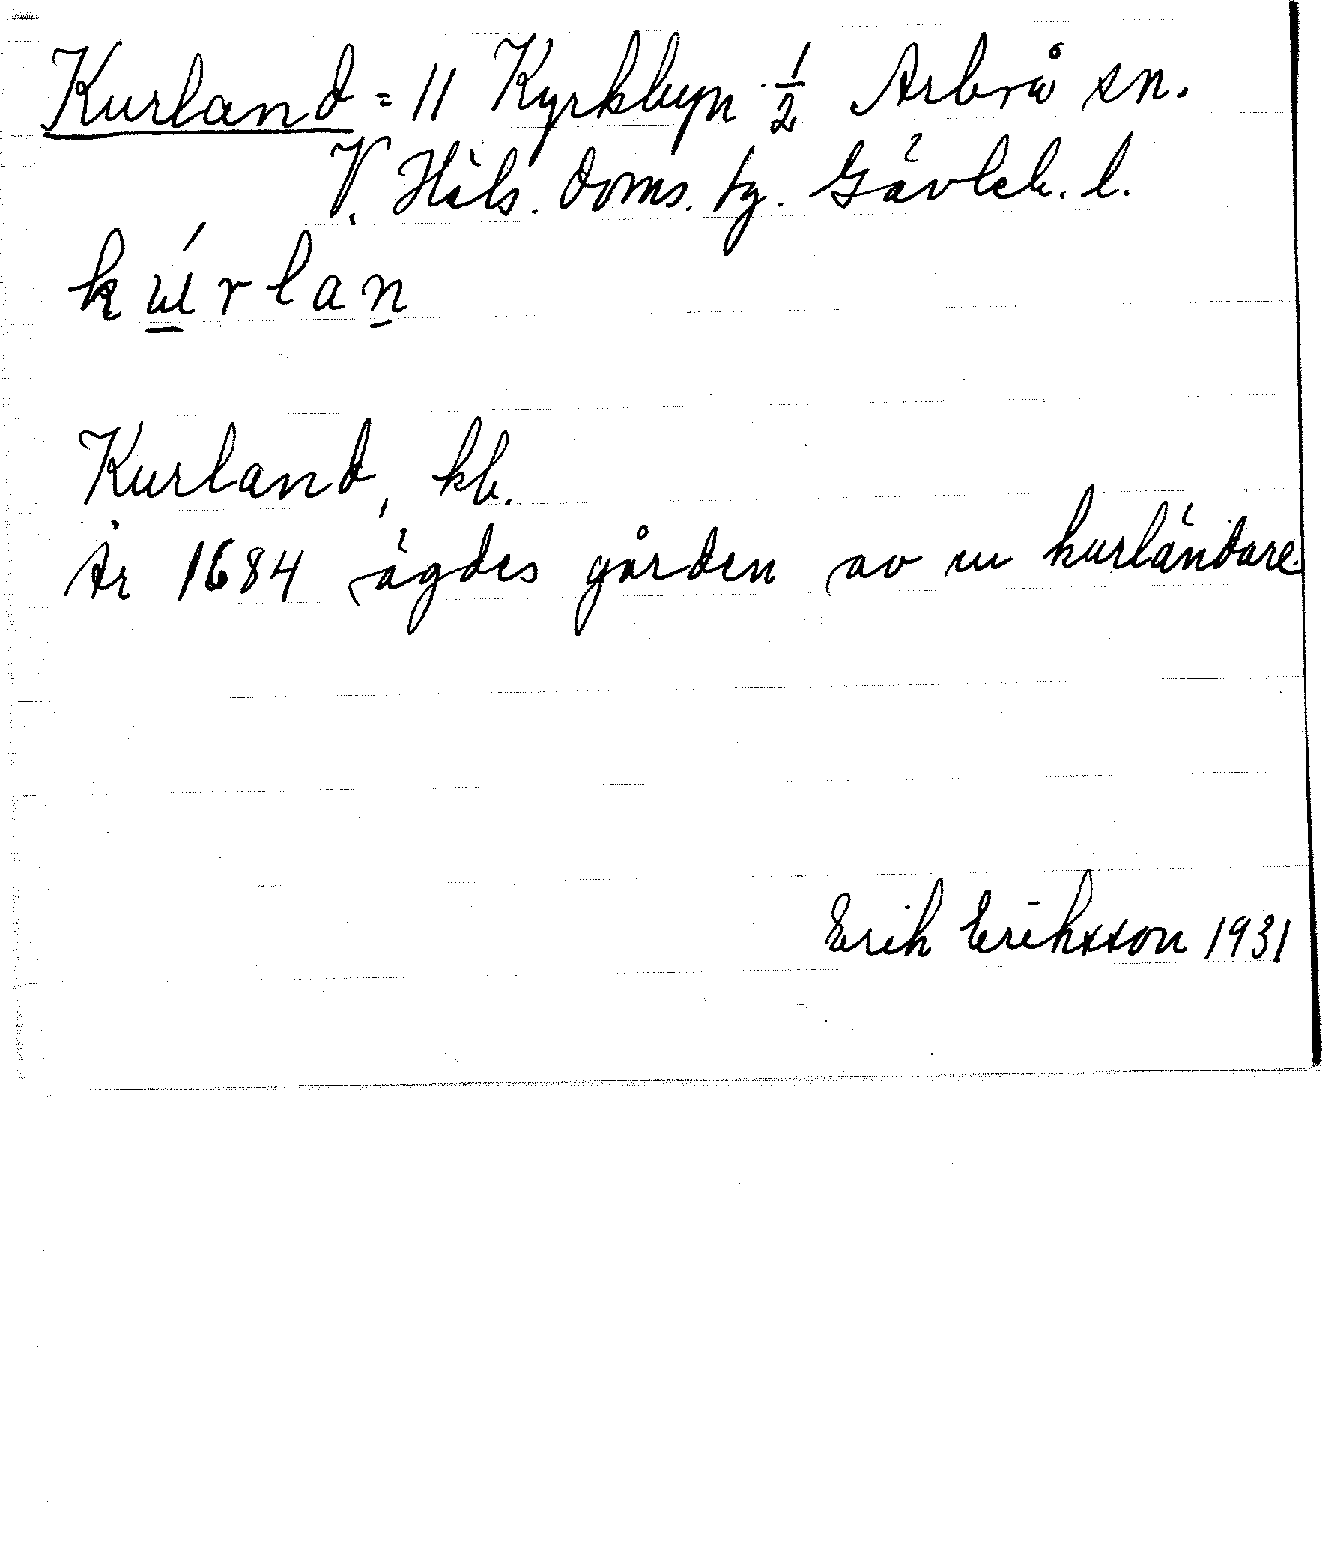 Kurland = 11 Kyrkbyn 1/2 Arbrå sn.
V. Häls. doms. tg. Gävleb. l.
kúrlan
Kurland, kb.
År 1684 ägdes gården av en kurländare.
Erik Eriksson 1931